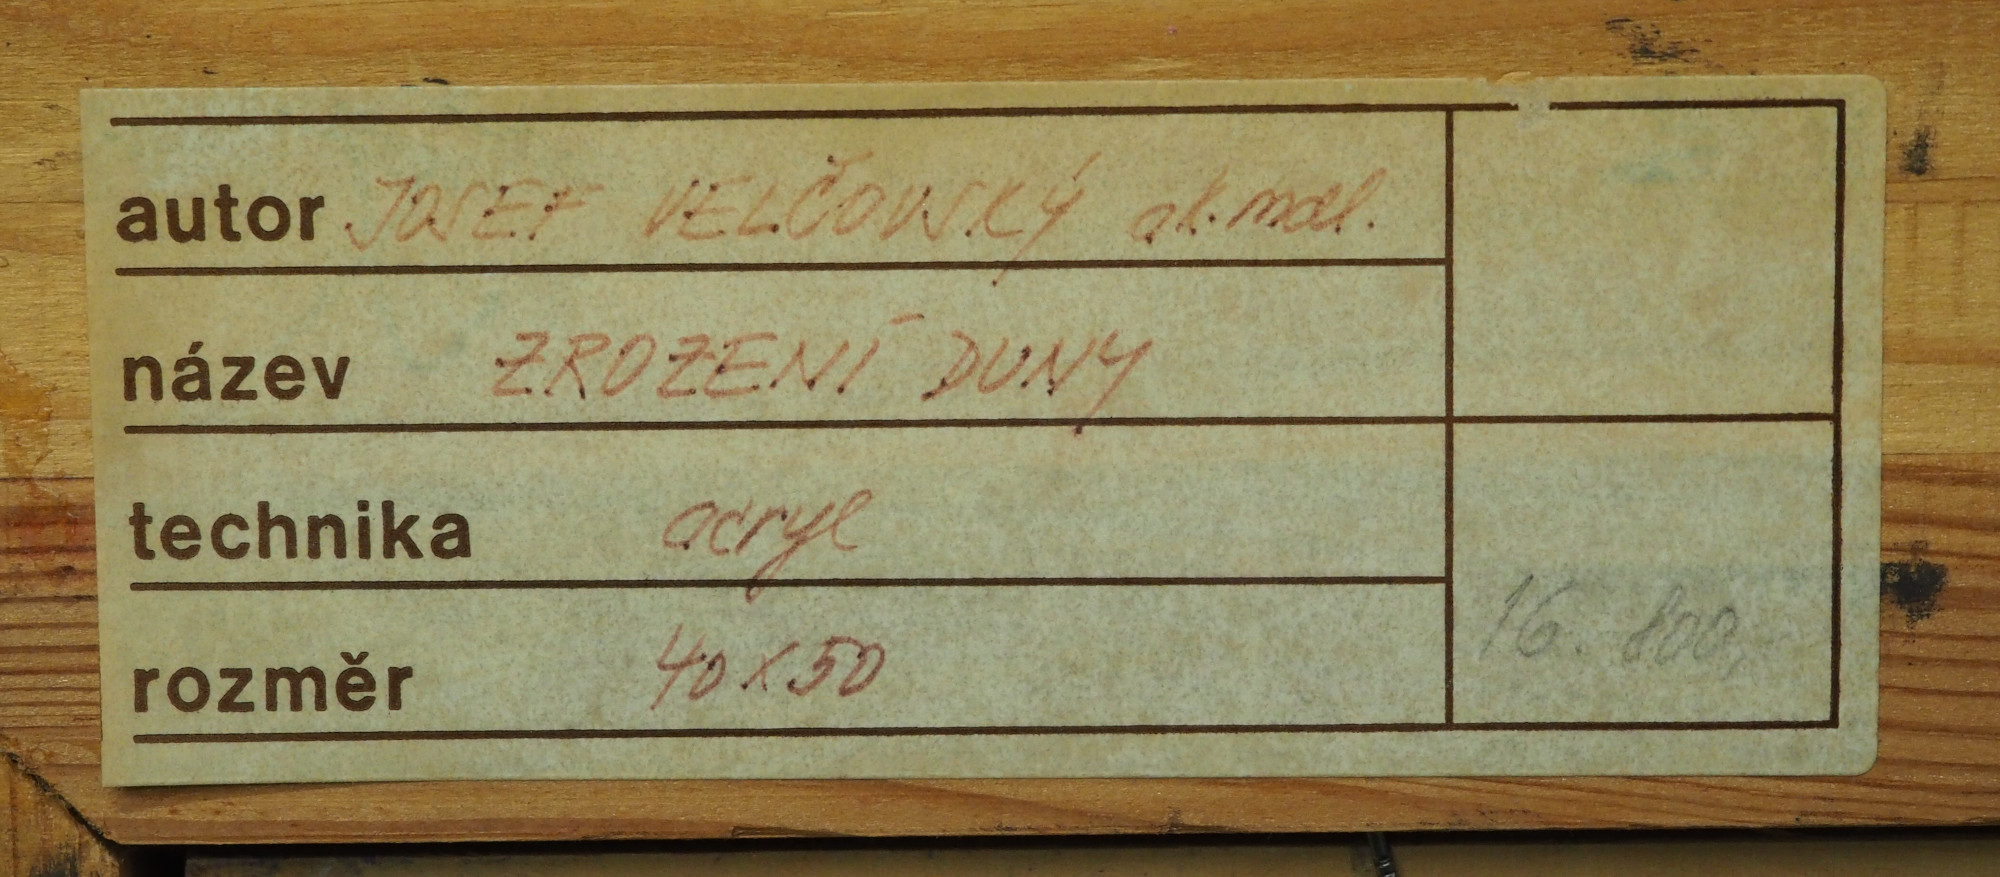 autor JOSEF VELČOVSKÝ ak. mal.
název ZROZENÍ DUNY
technika acryl
rozměr 40x50
16.800,-